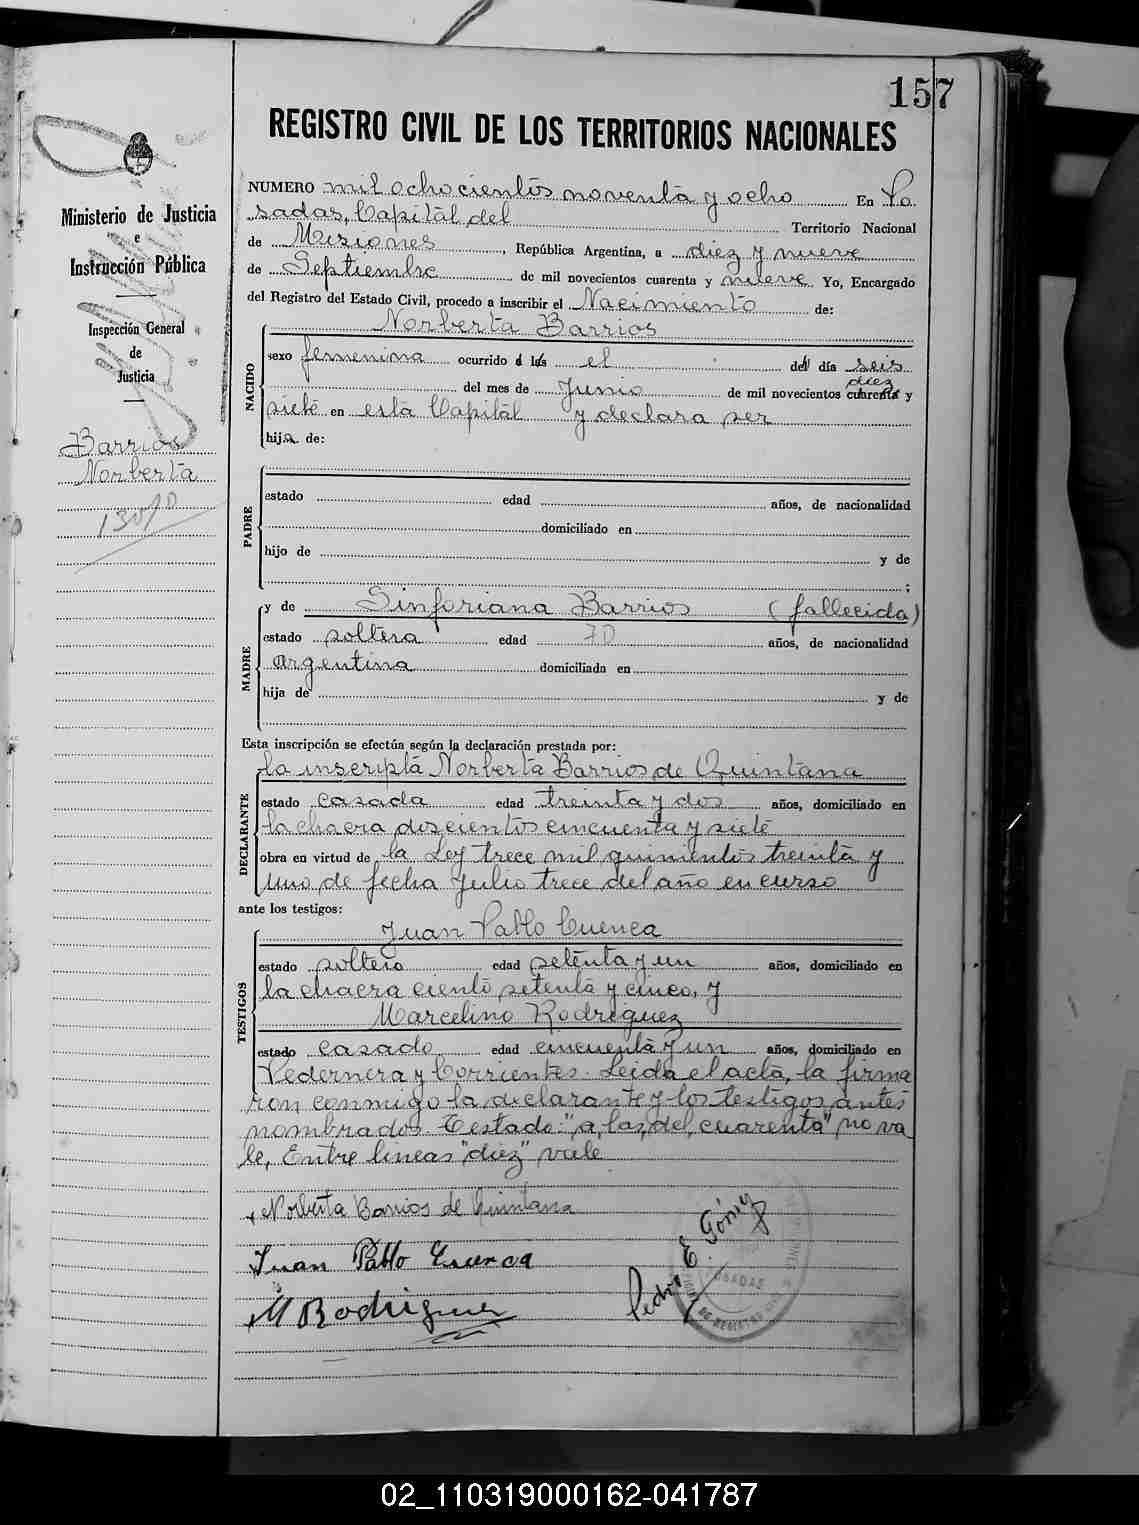 157
REGISTRO CIVIL DE LOS TERRITORIOS NACIONALES
Ministerio de Justicia
e
Instrucción Pública
Inspección General
de
Justicia
Barrios
Norberta
NUMERO mil ochocientos noventa y ocho En Po
sadas, Capital del Territorio Nacional
de Misiones, República Argentina, a diez y nueve
de Septiembre de mil novecientos cuarenta y nueve Yo, Encargado
del Registro del Estado Civil, procedo a inscribir el Nacimiento de:
Norberta Barrios
NACIDO
sexo femenina ocurrido á las el del día seis
diez
del mes de Junio de mil novecientos cuarenta y
siete en esta Capital y declara ser
hija de:
PADRE
estado edad años, de nacionalidad
domiciliado en
hijo de y de
;
MADRE
y de Sinforiana Barrios (fallecida)
estado soltera edad 70 años, de nacionalidad
argentina domiciliada en
hija de y de
Esta inscripción se efectúa según la declaración prestada por:
la inscripta Norberta Barrios de Quintana
DECLARANTE
estado casada edad treinta y dos años, domiciliado en
la chacra doscientos cincuenta y siete
obra en virtud de la Ley trece mil quinientos treinta y
uno de fecha Julio trece del año en curso
ante los testigos:
Juan Pablo Cuenca
TESTIGOS
estado soltero edad setenta y un años, domiciliado en
la chacra ciento setenta y cinco, y
Marcelino Rodriguez
estado casado edad cincuenta y un años, domiciliado en
Pedernera y Corrientes. Leida el acta, la firma
ron conmigo la declarante y los testigos antes
nombrados. Testado: "a, las, del, cuarenta" no va
le, Entre lineas "diez" vale
Norberta Barrios de Quintana
Juan Pablo Cuenca
M Rodriguez
Pedro E. Gómez
POSADAS
02_110319000162-041787